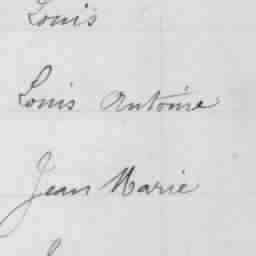 Louis
Louis Antoine
Jean Marie